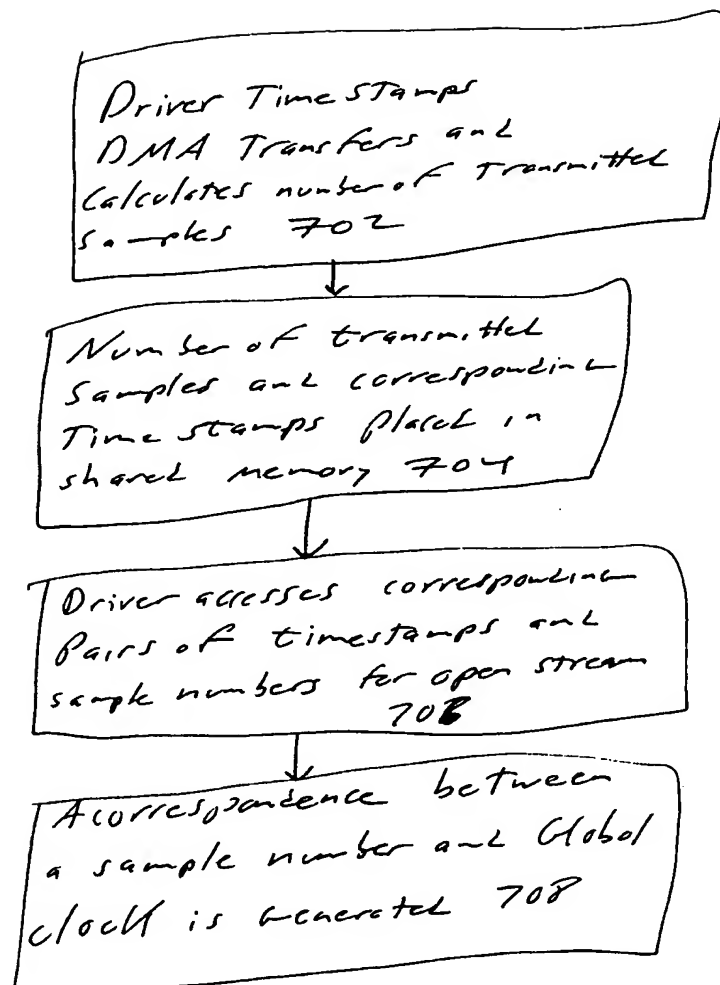 Driver Time Stamps
DMA Transfers and
Calculates number of Transmitted
Samples 702
Number of transmitted
Samples and corresponding
Time stamps Placed in
shared memory 704
Driver accesses corresponding
Pairs of timestamps and
sample numbers for open stream
706
A correspondence between
a sample number and Global
clock is Generated 708